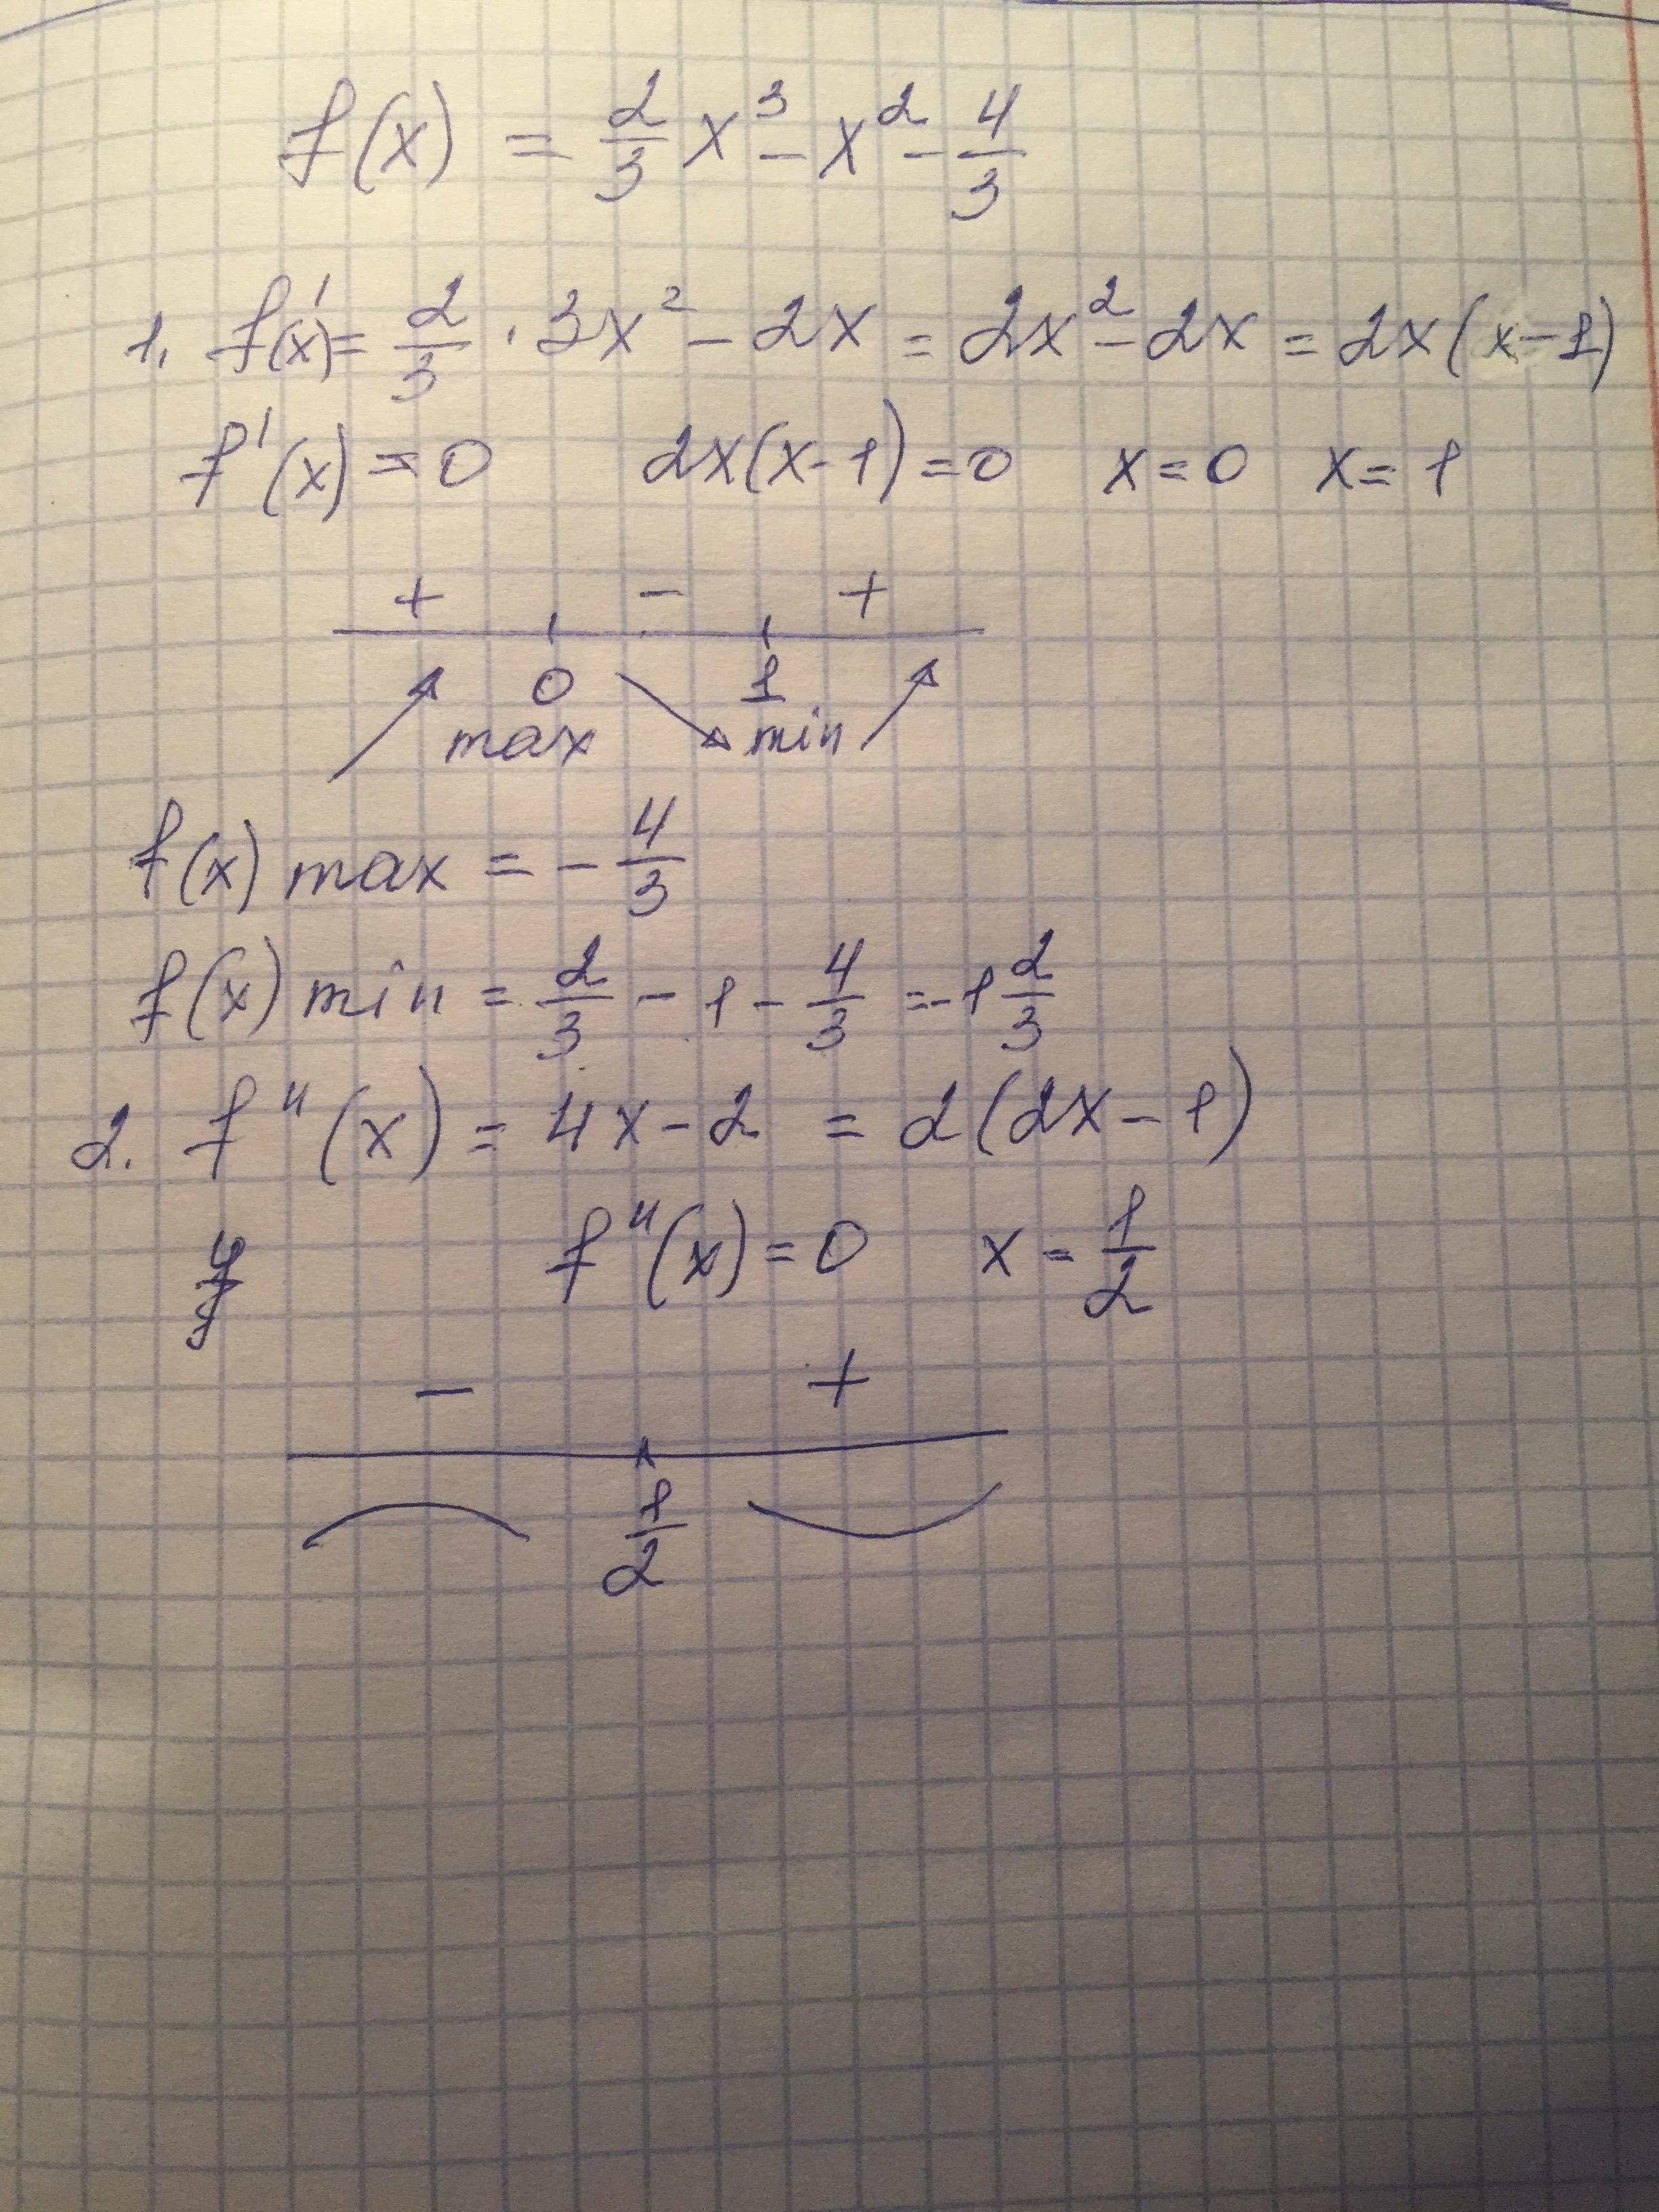 f(x) = 2/3 x³ - x² - 4/3
1. f'(x) = 2/3 · 3x² - 2x = 2x² - 2x = 2x(x-1)
f'(x) = 0 2x(x-1) = 0 x = 0 x = 1
+ - +
0 1
max min
f(x) max = - 4/3
f(x) min = 2/3 - 1 - 4/3 = -1 2/3
2. f''(x) = 4x - 2 = 2(2x - 1)
f''(x) = 0 x = 1/2
- +
1/2